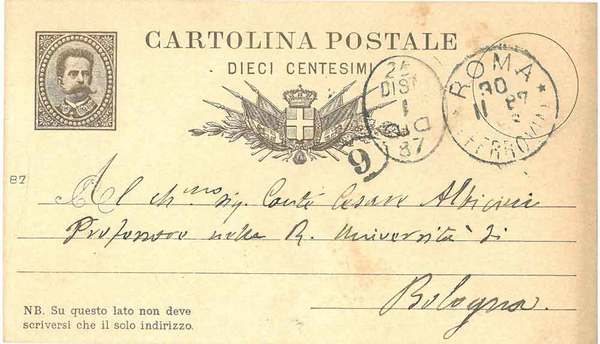 CARTOLINA POSTALE
DIECI CENTESIMI
ROMA
30
11 87
FERROVIA
25
DIST
1
87
9
82
Al ch.mo sig. Conte Cesare Albicini
Professore nella R. Università di
Bologna.
NB. Su questo lato non deve
scriversi che il solo indirizzo.